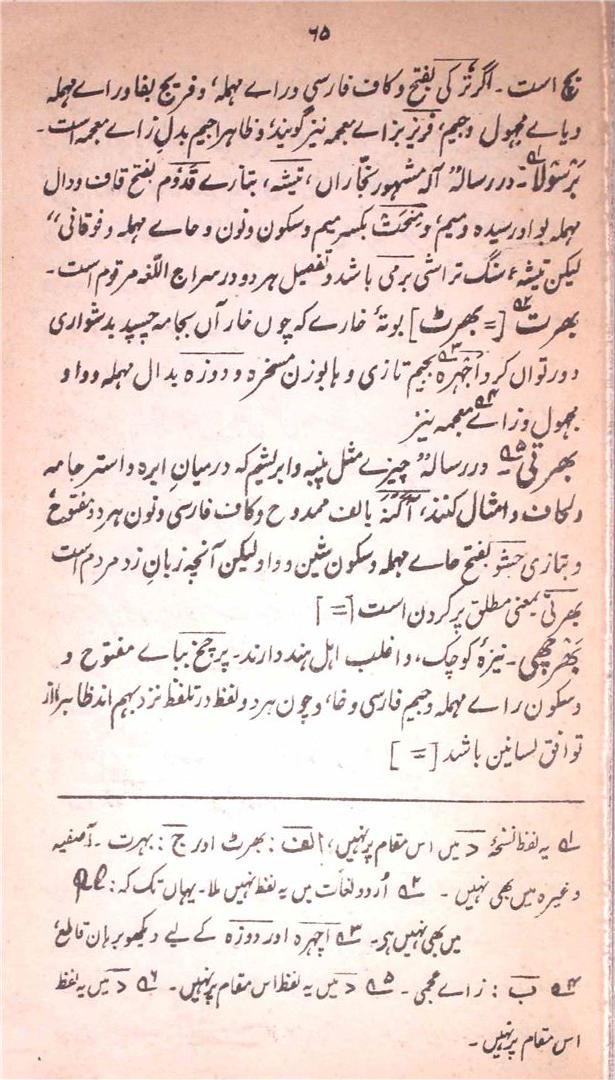 ۶۵
بچ است۔ اگر تُرکی بفتح و کاف فارسی و راے مہملہ، و فریج بفا و راے مہملہ
و یاے مجہول و جیم، فریز بزاے معجمہ نیز گویند و ظاہرا جیم بدلِ زاے معجمہ است۔
بَرسُولا۔ در رسالہ ”آلہ مشہور نجّاراں، تیشہ، بتازے قَدُوم بفتح قاف و دال
مہملہ بواو رسیدہ و میم، و مِنحَت بکسر میم و سکون و نون و حاے مہملہ و فوقانی“
لیکن تیشہء سنگ تراشی برمی باشد و تفصیل ہر دو در سراج اللغہ مرقوم است۔
بھرت [= بھرٹ] بوتۂ خارے کہ چوں خار آں بجامہ چسپد بدشواری
دور تواں کرد اَجہرہ بجیم تازی و ہا بوزن مسخرہ و دوزہ بدال مہملہ و واو
مجہول و زاے معجمہ نیز
بھرتی۔ در رسالہ ”چیزے مثل پنبہ و ابریشم کہ درمیانِ ابرہ و استر جامہ
و لحاف و امثال کنند، آگنہ بالف ممدوح و کاف فارسی و نون ہر دو مفتوح
و بتازی حشو بفتح حاے مہملہ و سکون شین و واو لیکن آنچہ زبان زد مردم است
بھرتی بمعنی مطلق پر کردن است [= ]
بَھرچھی۔ نیزۂ کوچک، و اغلب اہل ہند دارند۔ پرچخ بباے مفتوح و
و سکون راے مہملہ و جیم فارسی و خا، و چون ہر دو لفظ در تلفظ نزد بہم اند ظاہرا از
توافق لسانین باشد [= ]
۱ یہ لفظ نسخۂ د میں اس مقام پر نہیں، الف: بھرٹ اور ج: بہرت۔ آصفیہ
وغیرہ میں بھی نہیں۔ ۲ اُردو لغات میں یہ لفظ نہیں ملا۔ یہاں تک کہ: Pl
میں بھی نہیں ہی۔ ۳ اچہرہ اور دوزہ کے لیے دیکھو برہان قاطع،
۴ ب: زاے عجمی۔ ۵ د میں یہ لفظ اس مقام پر نہیں۔ ۶ د میں یہ لفظ
اس مقام پر نہیں۔